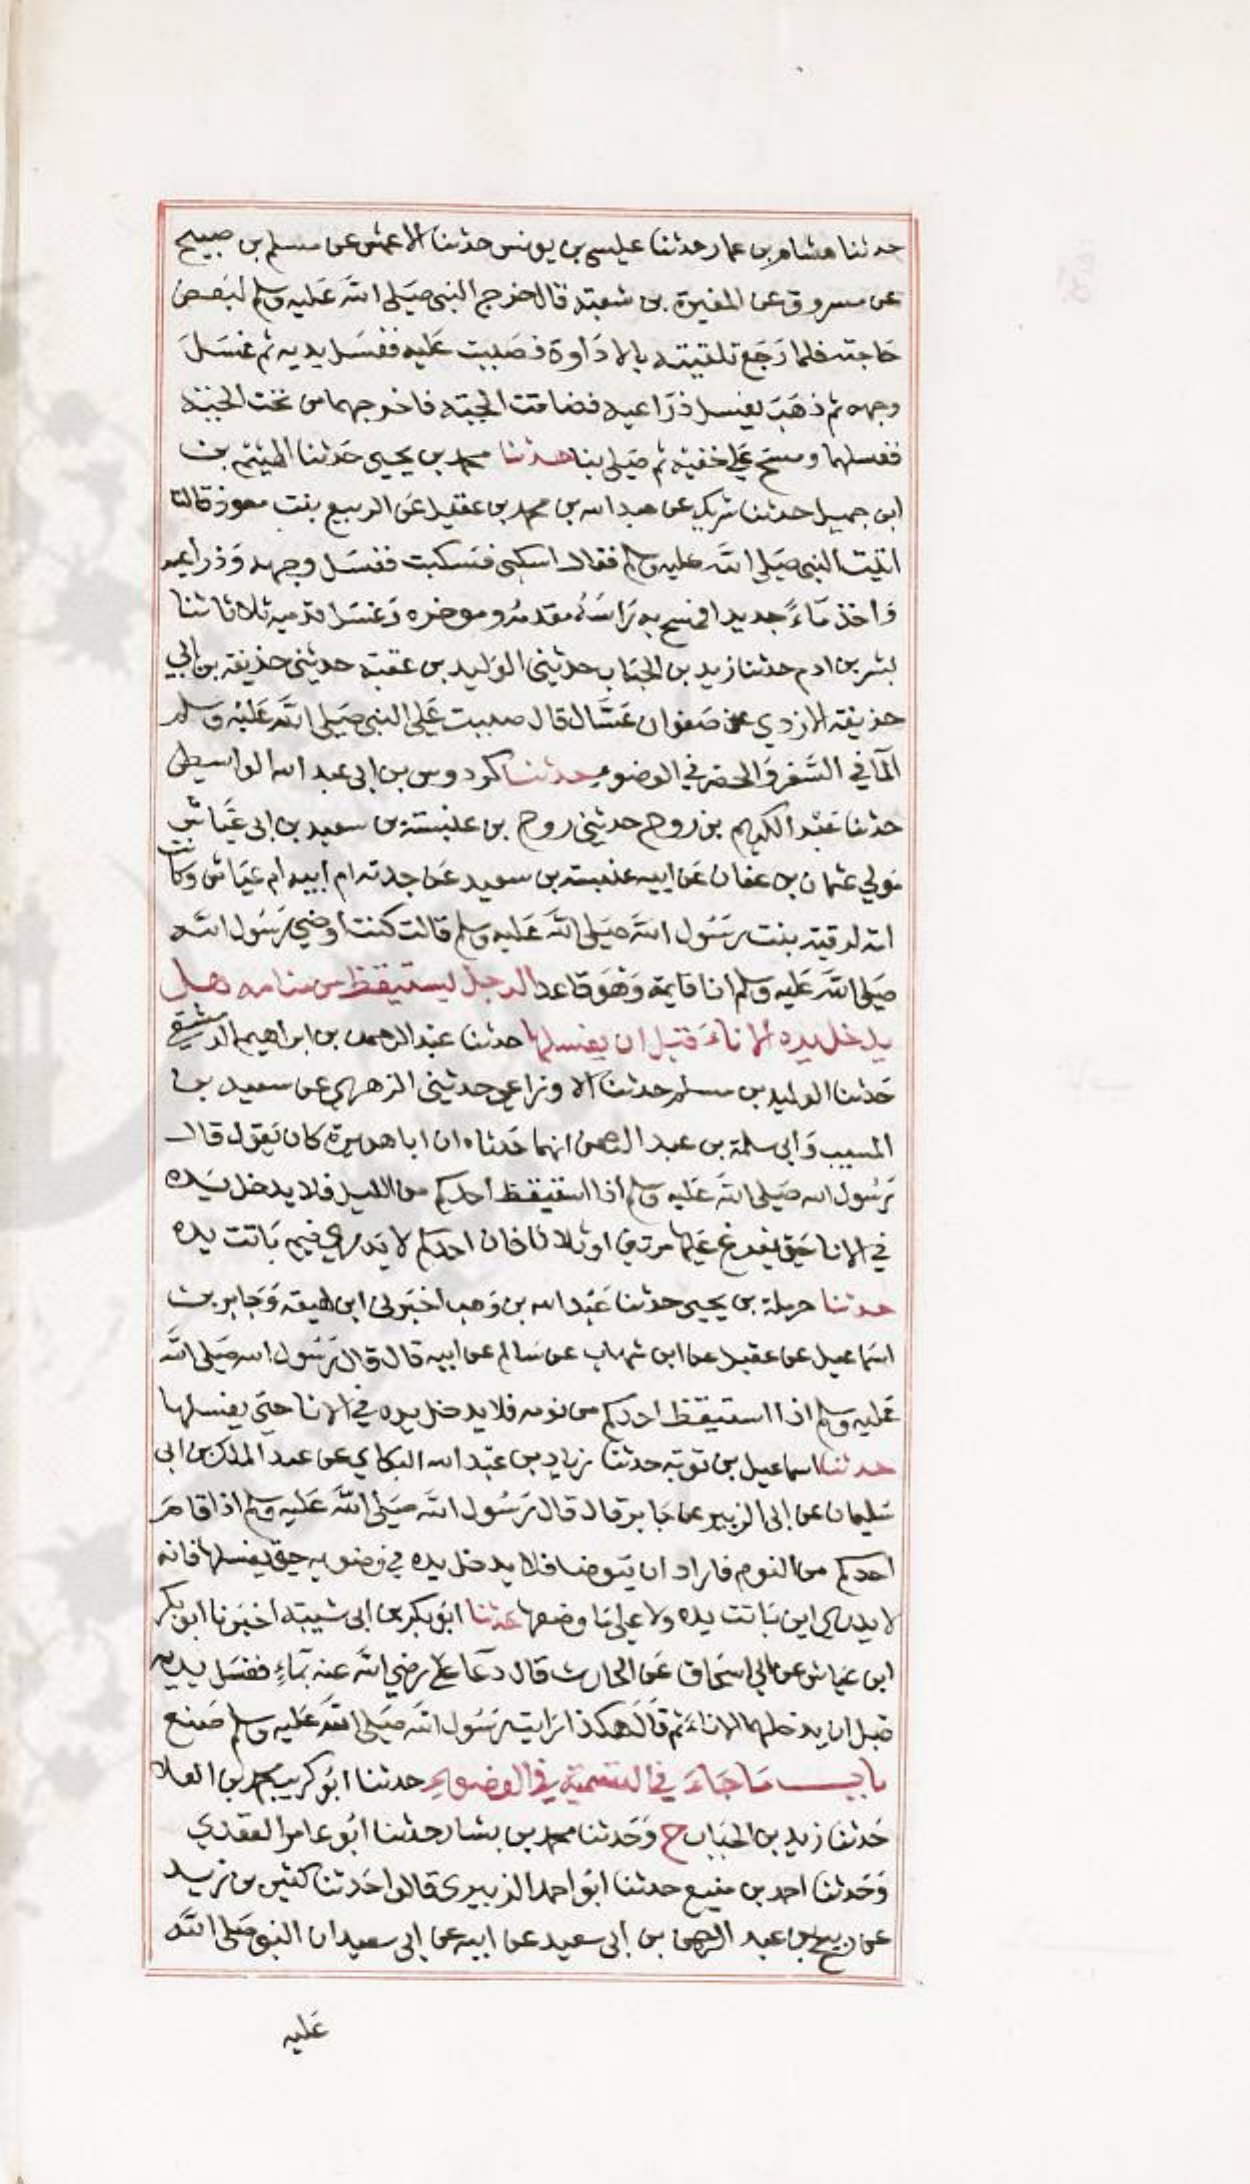 حدثنا هشام بن عمار حدثنا عيسى بن يونس حدثنا الاعمش عن مسلم بن صبيح
عن مسروق عن المغيرة بن شعبة قال خرج النبي صَلى الله عَليه وسلم لبَعض
حَاجته فلما رَجَع تلقيته بالادَاوة فصَببت عَليه فغسَل يديه ثم غسَلَ
وجهه ثم ذهَبَ يغسل ذرَاعيه فضاقت الجبة فاخرجهما من تحت الجبة
فغسلهما ومسَح عَلى خفيه ثم صَلى بنا حدثنا محمد بن يحيى حَدثنا الهيثم بن
ابن جميل حدثنا شريك عن عبد الله بن محمد بن عقيل عَن الربيع بنت معوذ قالت
اتيت النبي صَلى الله عليه وسلم فقال اسكبي فسَكبت فغسَل وجهه وَذراعيه
وَاخذ مَاءً جديدا فمسح به رَاسَهُ مقدمهُ وموخره وَغسَل قدميه ثلاثا ثلاثا
بشر بن ادم حدثنا زيد بن الحبَاب حدثني الوَليد بن عقبة حديثني حذيفة بن ابي
حذيفة الازدي عن صَفوان عَسَّال قال صببت عَلى النبي صَلى الله عَليْه وَسلم
الماَ في السَّفر وَالحضر في الوضوء حدثنا كردوس بن ابي عبد الله الواسطي
حدثنا عَبْد الكريم بن روح حدثني روح بن عنبسَة بن سعيد بن ابي عَيَّاش
مَولي عثمان بن عفان عَن ابيه عنبسة بن سعيد عَن جدته ام ابيه ام عيَاش وَكانت
امة لرقية بنت رسُول الله صَلى اللهُ عَليه وسلم قالت كنت اوضي رَسُول الله
صَلى الله عَليه وسلم انا قايمة وَهوَ قاعد الرجل يستيقظ من منامه هل
يدخل يده الاناءَ قبل ان يغسلها حدثنا عَبْد الرحمن بن ابراهيم الدمشقي
حَدثنا الوليد بن مسلم حدثنا الاوزاعي حديثني الزهري عن سعيد بن
المسيب وَابي سلمة بن عبد الرحمن انهما حَدثاه ان ابا هريرة كان يَقول قال
رَسُول الله صَلى الله عَليه وسلم اذا استيقظ احدكم من الليل فلا يدخل يَده
في الانا حَتى يفرغ عَليها مرتين او ثلاثا فان احدكم لا يَدري فيم بَاتت يده
حدثنا حرملة بن يحيى حدثنا عَبْد الله بن وَهب اخبَرني ابن لهيعة وَجَابر بن
اسمَاعيل عن عقيل عن ابن شهاب عن سَالم عن ابيه قال قال رَسُول الله صَلى الله
عَليه وسلم اذا استيقظ احدكم من نومه فلا يدخل يده في الانا حتي يغسلها
حدثنا اسماعيل بن توبة حدثنا زياد بن عَبْد الله البكاي عن عبد الملك بن ابي
سَليمان عن ابي الزبير عن جَابر قال قال رَسُول الله صَلى اللهُ عَليه وسلم اذا قامَ
احدكم من النوم فاراد ان يَتوضا فلا يدخل يده في وَضويه حتى يغسلها فانه
لا يدري اين بَاتت يده ولا عَلى مَا وضعها حدثنا ابَو بكر بن ابي شيبة اخبَرنا ابو بكر
ابن عيَاش عن ابي اسحَاق عَن الحارث قال دعَا علي رضي الله عنه بمَاءٍ فغسَل يديه
قبل ان يدخلهما الاناءَ ثم قَالَ هكذا رَايت رَسُول الله صَلى اللهُ عَليه وسلم صَنع
باب مَا جَاءَ في التسمية في الوضوءِ حدثنا ابَو كريب محمد بن العلا
حَدثنا زيد بن الحبَاب ح وَحَدثنا محمد بن بشار حدثنا ابُو عامر العقدي
وَحَدثنا احمد بن منيع حدثنا ابَو احمد الزبيري قالوا حَدثنا كثير بن زيد
عن ربيح بن عبد الرحمن بن ابي سعيد عن ابيه عن ابي سعيد ان النبي صَلى الله
عَليه